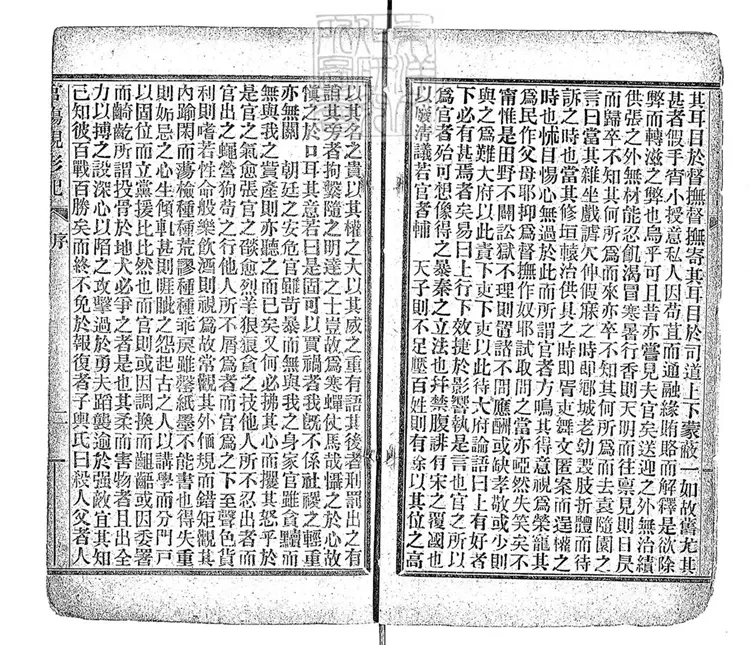 其耳目於督撫督撫寄其耳目於司道上下蒙蔽一如故舊尤其
甚者假手宵小授意私人因苞苴而通融緣賄賂而解釋是欲除
弊而轉滋之弊也烏乎可且昔亦嘗見夫官矣送迎之外無治績
供張之外無材能忍飢渴冒寒暑行香則天明而往稟見則日昃
而歸卒不知其何所爲而來亦卒不知其何所爲而去袁隨園之
言曰當其雜坐戲謔欠伸假寐之時即鄉城老幼毀肢折體而待
訴之時也當其修垣轅治供具之時即胥吏舞文匿案而逞權之
時也怵目惕心無過於此而所謂官者方鳴其得意視爲榮寵其
爲民作父母耶抑爲督撫作奴耶試取問之當亦啞然失笑矣不
甯惟是田野不闢訟獄不理則置諸不問應酬或缺孝敬或少則
與之爲難大府以此責下吏下吏以此待大府論語曰上有好者
下必有甚焉者矣易曰上行下效捷於影響執是言也官之所以
爲官者殆可想像得之暴秦之立法也幷禁腹誹有宋之覆國也
以廢清議若官者輔　天子則不足壓百姓則有餘以其位之高
以其名之貴以其權之大以其威之重有語其後者刑罰出之有
誚其旁者拘繫隨之明達之士豈故爲寒蟬仗馬哉懾之於心故
愼之於口耳其意若曰是固可以賈禍者我旣不係社稷之輕重
亦無關　朝廷之安危官雖苛暴而無與我之身家官雖貪黷而
無與我之貲產則亦聽之而已矣又何必拂其心而攖其怒乎於
是官之氣愈張官之燄愈烈羊狠狼貪之技他人所不忍出者而
官出之蠅營狗苟之行他人所不屑爲者而官爲之下至聲色貨
利則嗜若性命般樂飮酒則視爲故常觀其外偭規而錯矩觀其
內踰閑而蕩檢種種荒謬種種乖戾雖罄紙墨不能書也得失重
則妬忌之心生傾軋甚則睚眦之怨起古之人以講學而分門戶
以固位而立黨援比比然也而官則或因調換而齟齬或因委署
而齮齕所謂投骨於地犬必爭之者是也其柔而害物者且出全
力以搏之設深心以陷之攻擊過於勇夫蹈襲逾於强敵宜其知
已知彼百戰百勝矣而終不免於報復者子輿氏曰殺人父者人
官場現形記　序　二